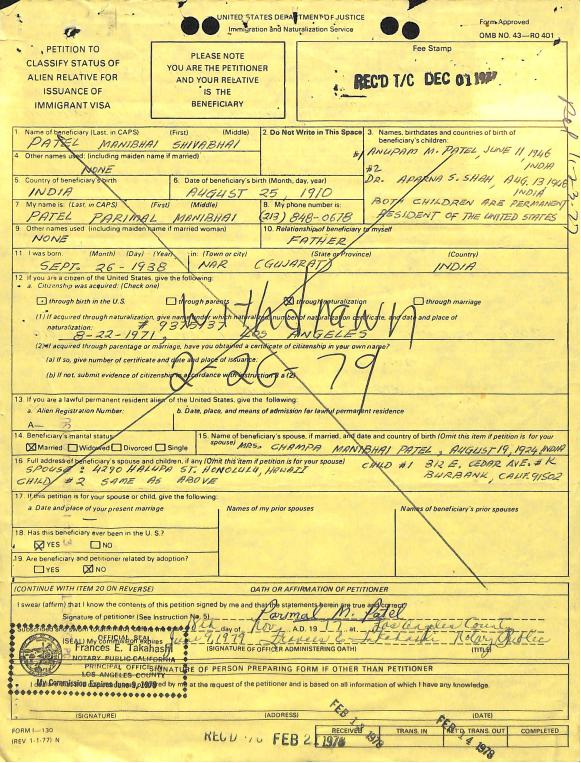 UNITED STATES DEPARTMENT OF JUSTICE
Immigration and Naturalization Service
Form Approved
OMB NO. 43—RO 401
PETITION TO
CLASSIFY STATUS OF
ALIEN RELATIVE FOR
ISSUANCE OF
IMMIGRANT VISA
PLEASE NOTE
YOU ARE THE PETITIONER
AND YOUR RELATIVE
IS THE
BENEFICIARY
Fee Stamp
REC'D T/C DEC 01 1977
1. Name of beneficiary (Last, in CAPS) (First) (Middle)
PATEL MANIBHAI SHIVABHAI
2. Do Not Write in This Space
3. Names, birthdates and countries of birth of beneficiary's children:
#1 ANUPAM M. PATEL, JUNE 11 1946
INDIA
#2
DR. APARNA S. SHAH, AUG. 13 1948
INDIA
BOTH CHILDREN ARE PERMANENT
RESIDENT OF THE UNITED STATES
4. Other names used: (including maiden name if married)
NONE
5. Country of beneficiary's birth
INDIA
6. Date of beneficiary's birth (Month, day, year)
AUGUST 25, 1910
7. My name is: (Last, in CAPS) (First) (Middle)
PATEL PARIMAL MANIBHAI
8. My phone number is:
(213) 848-0678
9. Other names used (including maiden name if married woman)
NONE
10. Relationship of beneficiary to myself
FATHER
11. I was born: (Month) (Day) (Year) in: (Town or city) (State or Province) (Country)
SEPT. 26-1938 NAR (GUJARAT) INDIA
12. If you are a citizen of the United States, give the following:
a. Citizenship was acquired: (Check one)
through birth in the U.S. through parents through naturalization through marriage
(1) If acquired through naturalization, give name under which naturalized, number of naturalization certificate, and date and place of
naturalization:
8-22-1971, LOS ANGELES
(2) If acquired through parentage or marriage, have you obtained a certificate of citizenship in your own name?
(a) If so, give number of certificate and date and place of issuance:
(b) If not, submit evidence of citizenship in accordance with instruction 3 a (2)
Withdrawn
2-20-79
13. If you are a lawful permanent resident alien of the United States, give the following:
a. Alien Registration Number: b. Date, place, and means of admission for lawful permanent residence
A—
14. Beneficiary's marital status:
Married Widowed Divorced Single
15. Name of beneficiary's spouse, if married, and date and country of birth (Omit this item if petition is for your
spouse) MRS. CHAMPA MANIBHAI PATEL, AUGUST 19, 1924, INDIA
16. Full address of beneficiary's spouse and children, if any (Omit this item if petition is for your spouse)
SPOUSE: 4290 HALUPA ST. HONOLULU, HAWAII CHILD #1 812 E. CEDAR AVE. # K
CHILD #2 SAME AS ABOVE BURBANK, CALIF. 91502
17. If this petition is for your spouse or child, give the following:
a. Date and place of your present marriage Names of my prior spouses Names of beneficiary's prior spouses
18. Has this beneficiary ever been in the U.S.?
YES NO
19. Are beneficiary and petitioner related by adoption?
YES NO
(CONTINUE WITH ITEM 20 ON REVERSE) OATH OR AFFIRMATION OF PETITIONER
I swear (affirm) that I know the contents of this petition signed by me and that the statements herein are true and correct.
Signature of petitioner (See Instruction No. 5) Parimal M. Patel
day of Nov. A.D. 19 77 at Los Angeles County
(SEAL) My commission expires June 9, 1979 Frances E. Takahashi Notary Public
(SIGNATURE OF OFFICER ADMINISTERING OATH) (TITLE)
OFFICIAL SEAL
Frances E. Takahashi
NOTARY PUBLIC CALIFORNIA
PRINCIPAL OFFICE IN
LOS ANGELES COUNTY
My Commission Expires June 9, 1979
SIGNATURE OF PERSON PREPARING FORM IF OTHER THAN PETITIONER
by me at the request of the petitioner and is based on all information of which I have any knowledge.
(SIGNATURE) (ADDRESS) (DATE)
FORM I—130
(REV. 1-1-77) N
REC'D FEB 21 1978
RECEIVED TRANS. IN RET'D TRANS. OUT COMPLETED
FEB 13 1978
FEB 14 1978